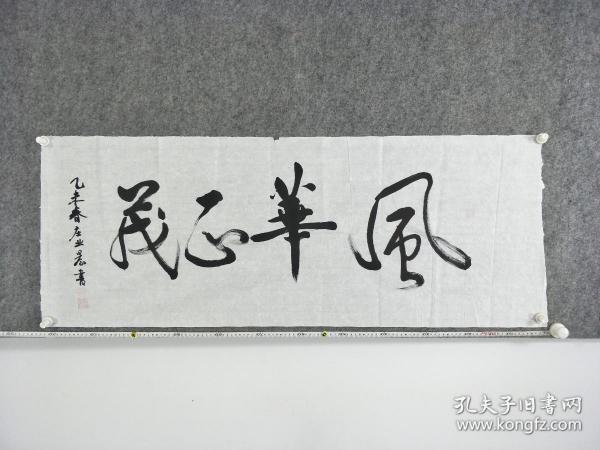 風華正茂
乙未春庄业晨書
孔夫子旧書网
www.kongfz.com